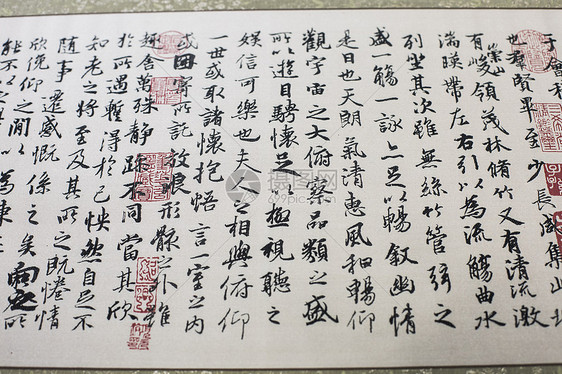 于會稽
也羣賢畢至少長咸集此地
有崇山峻領茂林脩竹又有清流激
湍暎帶左右引以為流觴曲水
列坐其次雖無絲竹管弦之
盛一觴一詠亦足以暢敘幽情
是日也天朗氣清惠風和暢仰
觀宇宙之大俯察品類之盛
所以遊目騁懷足以極視聽之
娛信可樂也夫人之相與俯仰
一世或取諸懷抱悟言一室之內
或因寄所託放浪形骸之外雖
趣舍萬殊靜躁不同當其欣
於所遇暫得於己怏然自足不
知老之將至及其所之既惓情
隨事遷感慨係之矣向之所
欣俛仰之閒以為陳
能不以之